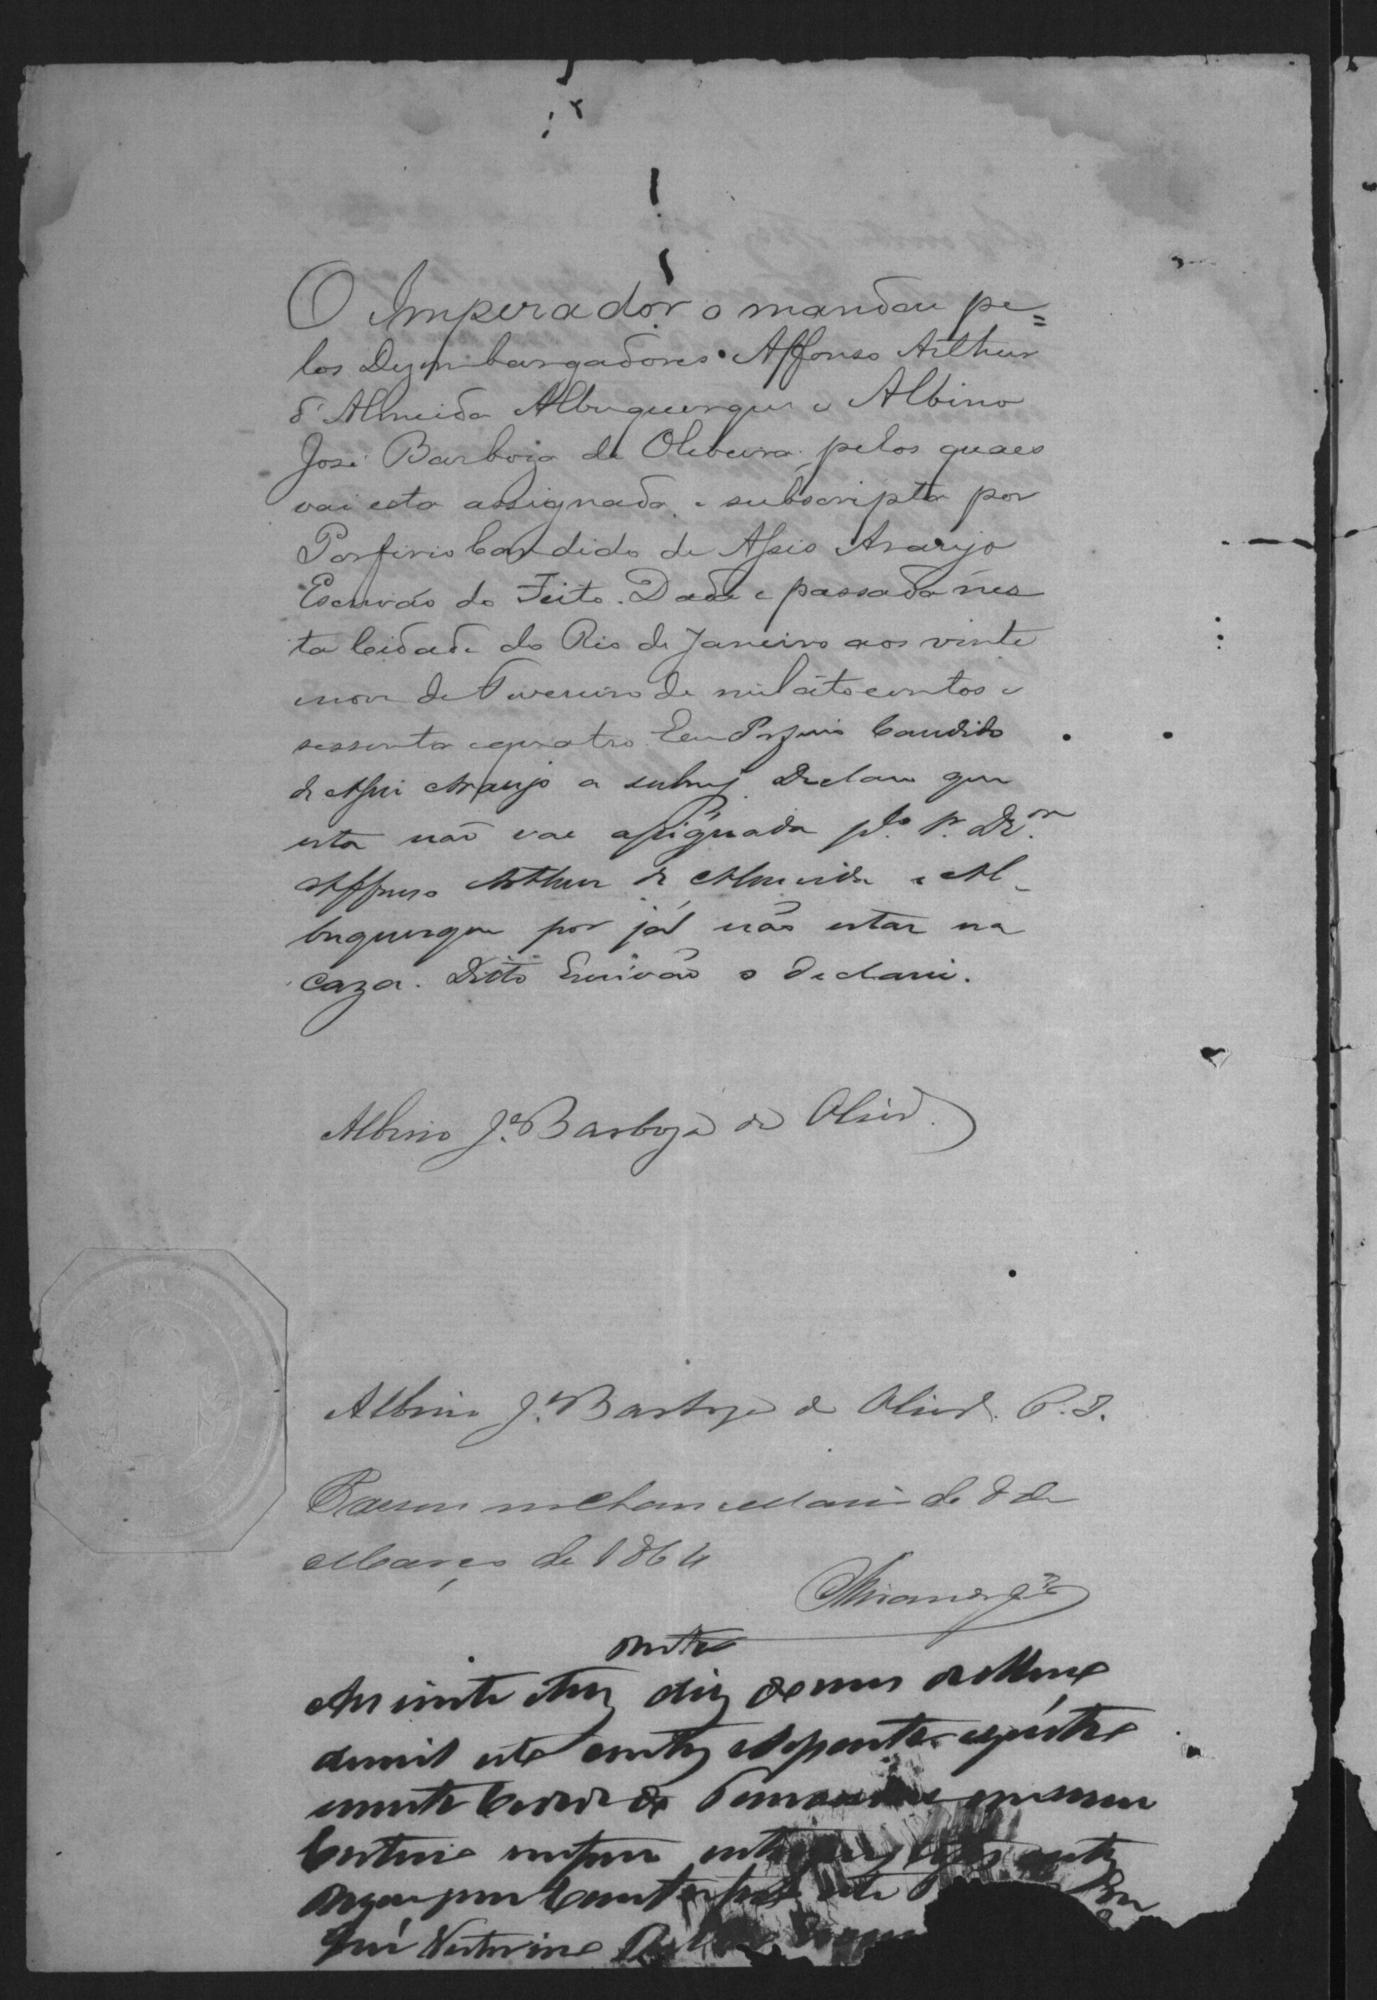 O Imperador o mandou pe=
los Dezembargadores Affonso Arthur
d'Almeida Albuquerque e Albino
José Barboza de Oliveira, pelos quaes
vai esta assignada, e subscripta por
Porfirio Candido de Assis Araujo
Escrivão do Feito. Dada e passada nes
ta Cidade do Rio de Janeiro aos vinte
e nove de Fevereiro de mil oito centos e
sessenta e quatro. Eu Porfirio Candido
de Assis Araujo a subscrevi. Declaro que
esta não vae assignada plo. Sr. Dr.
Affonso Arthur de Almeida e Al-
buquerque por já não estar na
caza. Dito Escrivão o declarei.
Albino Je. Barboza de Olivra.
Albino Je. Barboza de Olivra. P. I.
Passou na Chancellaria de 8 de
Março de 1864
outro
dias do mes de
de mil oito centos e sessenta e quatro
nesta Cidade de em meu
Cartorio
José Victorino